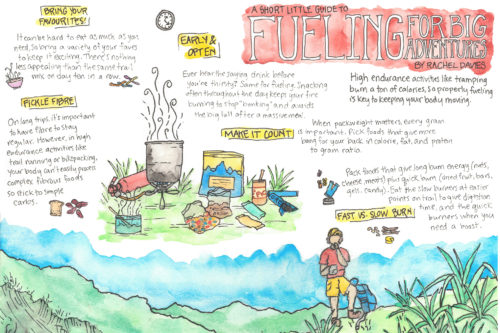 A SHORT LITTLE GUIDE TO
FUELING FOR BIG
ADVENTURES
BY RACHEL DAVIES
High endurance activities like tramping
burn a ton of calories, so properly fueling
is key to keeping your body moving.
BRING YOUR
FAVOURITES!
It can be hard to eat as much as you
need, so bring a variety of your faves
to keep it exciting. There's nothing
less appealing than the same trail
mix on day ten in a row.
EARLY &
OFTEN
Ever hear the saying drink before
you're thirsty? Same for fueling. Snacking
often throughout the day keeps your fire
burning to stop "bonking" and avoids
the big lull after a massive meal.
PICKLE FIBRE
On long trips, it's important
to have fibre to stay
regular. However, in high
endurance activities like
trail running or bikepacking,
your body can't easily process
complex, fibrous foods
so stick to simple
carbs.
MAKE IT COUNT
When packweight matters, every gram
is important. Pick foods that give more
bang for your pack in calorie, fat, and protein
to gram ratio.
Pack foods that give long burn energy (nuts,
cheese, meats) plus quick burn (dried fruit, bars,
gels, candy). Eat the slow burners at easier
points on trail to give digestion
time, and the quick
burners when you
need a boost.
FAST VS. SLOW BURN